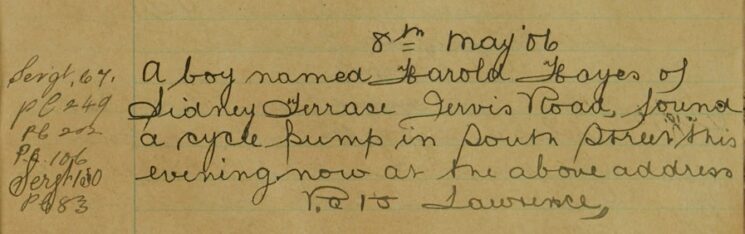 8th May '06
Sergt. 67.
PC 249
PC 202
P.C. 106
Sergt 130
PC 83
A boy named Harold Hayes of
Sidney Terrace Jervis Road, found
a cycle pump in South Street this
evening now at the above address
P.C 15 Lawrence,